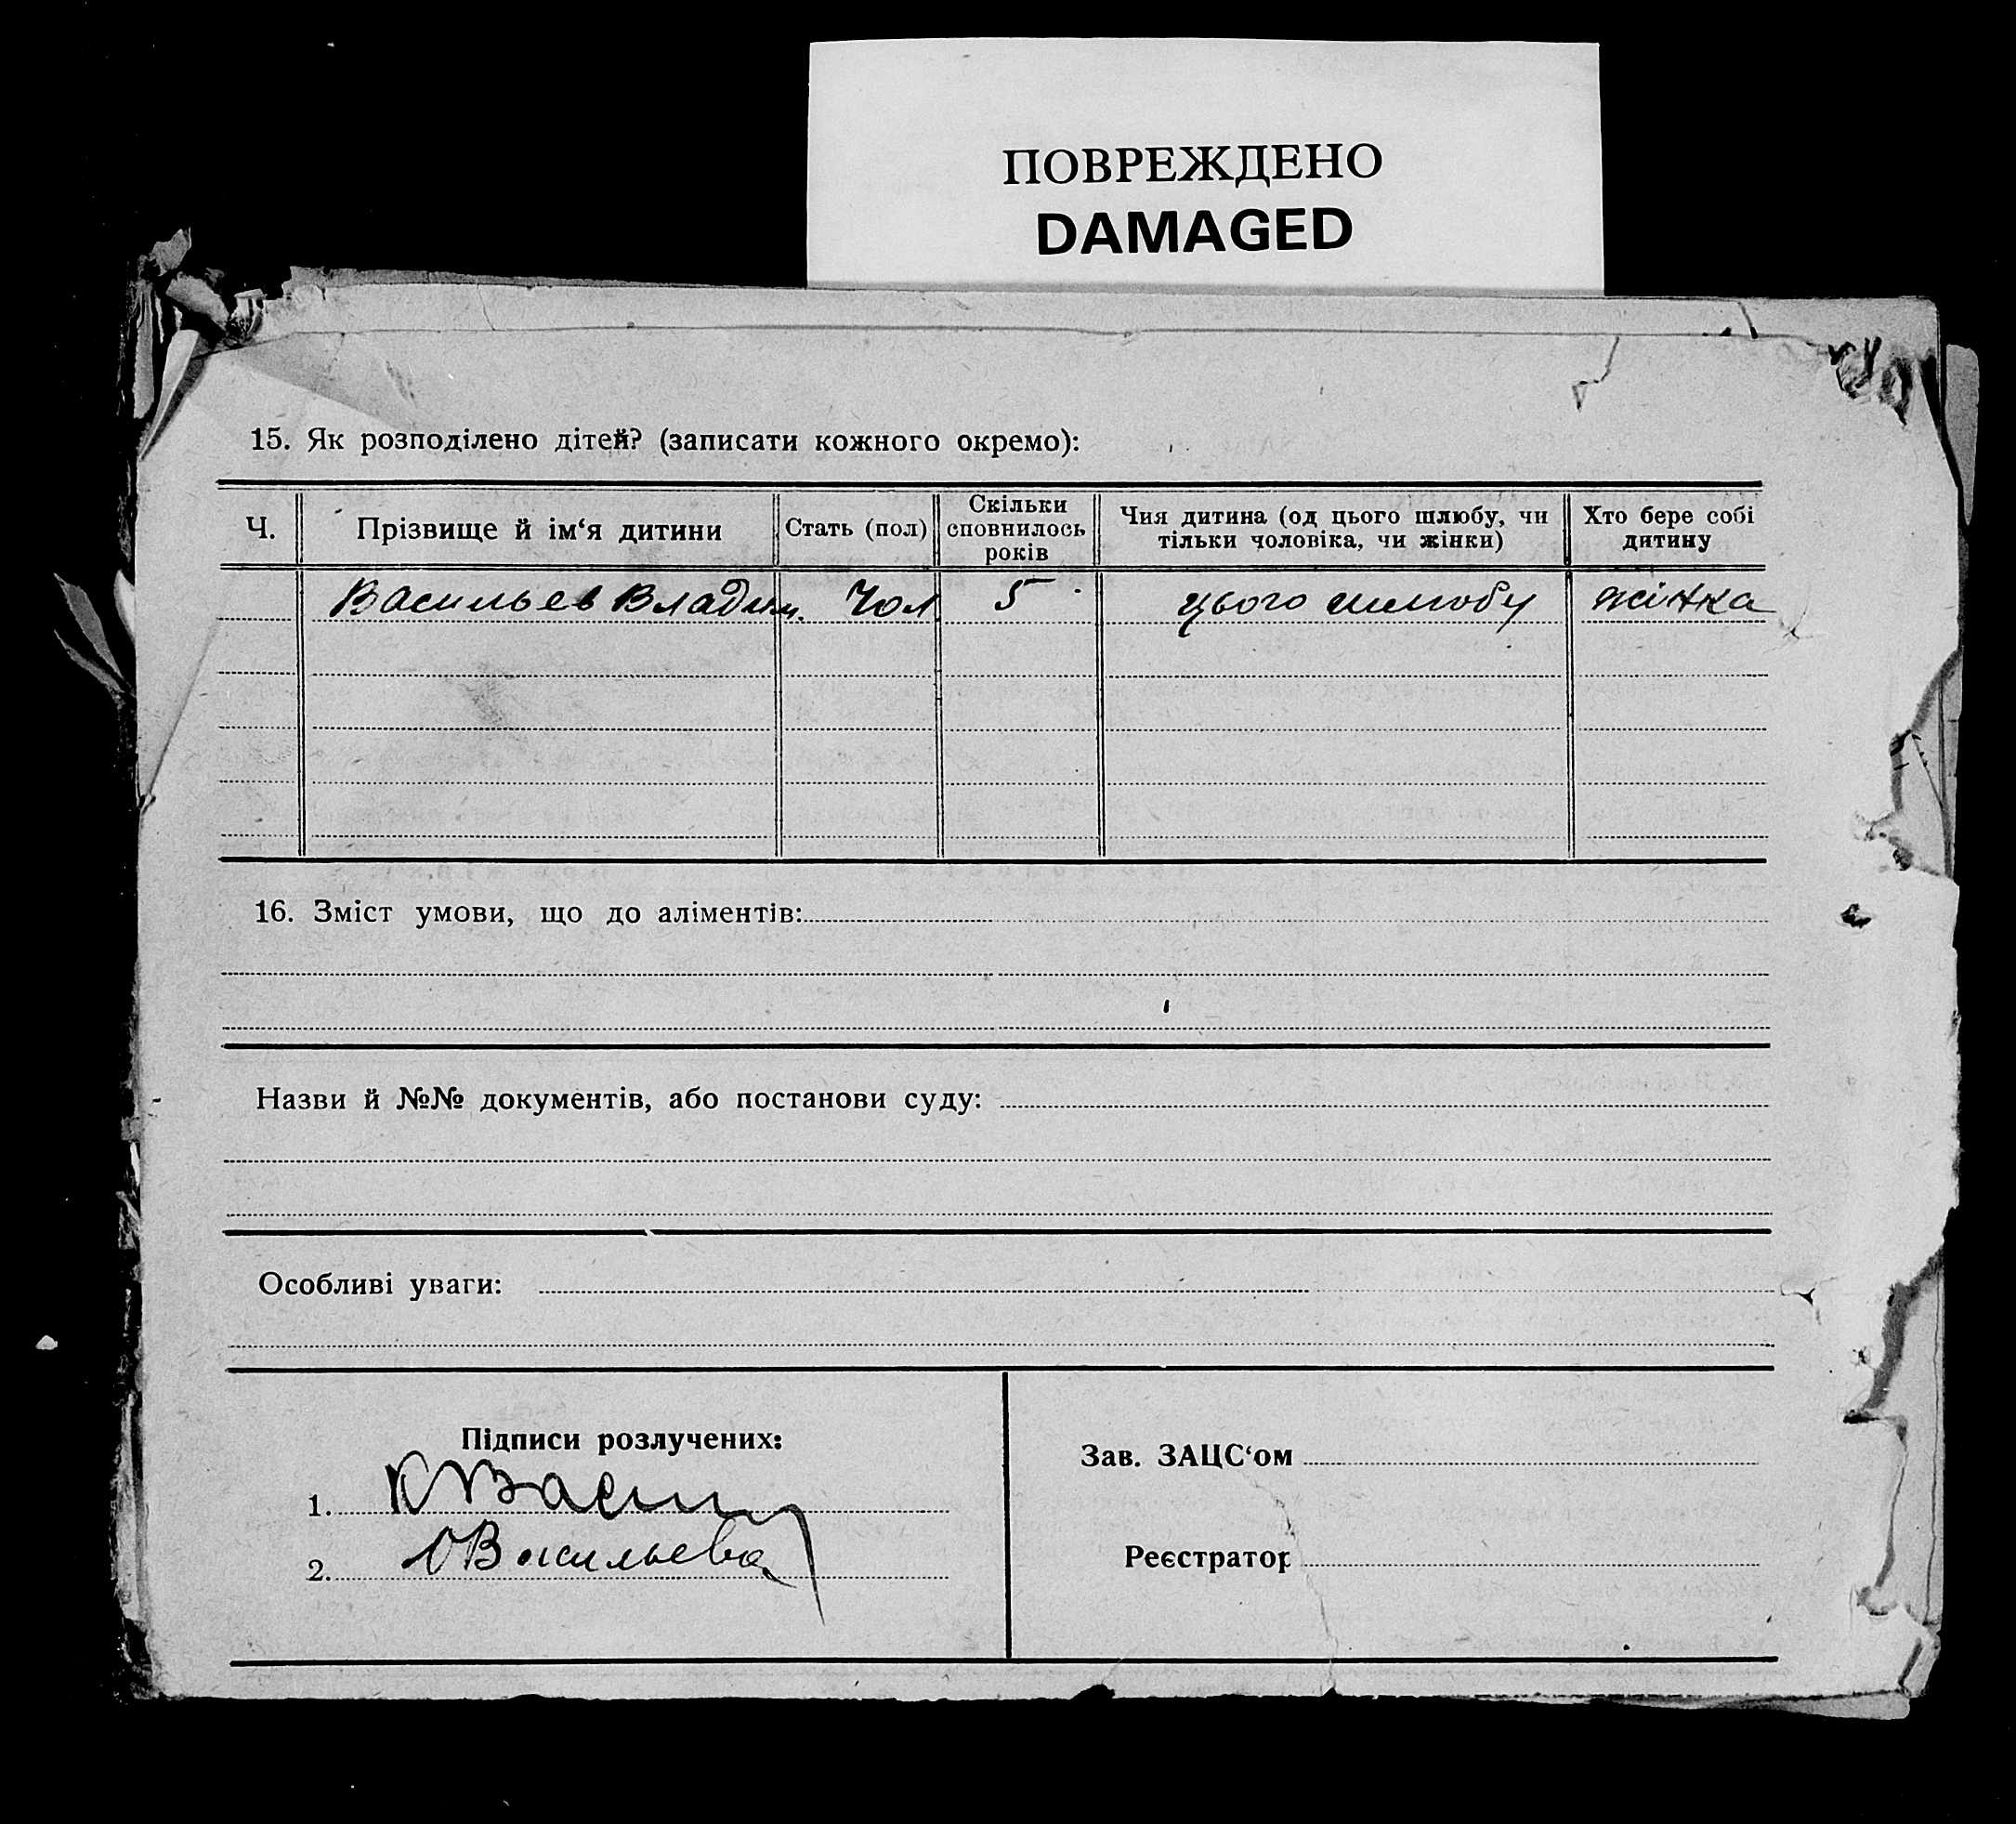 ПОВРЕЖДЕНО
DAMAGED
15. Як розподілено дітей? (записати кожного окремо):
Ч. Прізвище й ім‘я дитини Стать (пол) Скільки сповнилось років Чия дитина (од цього шлюбу, чи тільки чоловіка, чи жінки) Хто бере собі дитину
Васильев Владим. Чол. 5 цього шлюбу жінка
16. Зміст умови, що до аліментів:
Назви й №№ документів, або постанови суду:
Особливі уваги:
Підписи розлучених:
1. КВасил
2. ОВасильева
Зав. ЗАЦС‘ом
Реєстратор